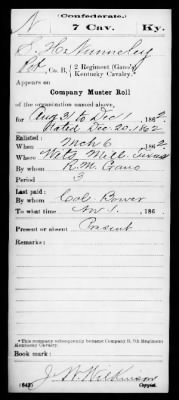 (Confederate.)
N 7 Cav. Ky.
S. H. Nunneley
Pvt, Co. B, { 2 Regiment (Gano's) Kentucky Cavalry.*
Appears on
Company Muster Roll
of the organization named above,
for Aug 31 to Dec 1, 1862.
Dated Dec. 20, 1862
Enlisted:
When Mch 6, 1862
Where Wits Mill, Texas
By whom R. M. Gano
Period 3
Last paid:
By whom Col. Bower
To what time Nov 1, 186
Present or absent Present
Remarks:
*This company subsequently became Company B, 7th Regiment
Kentucky Cavalry.
Book mark:
J. W. Wilkinson
(642) Copyist.